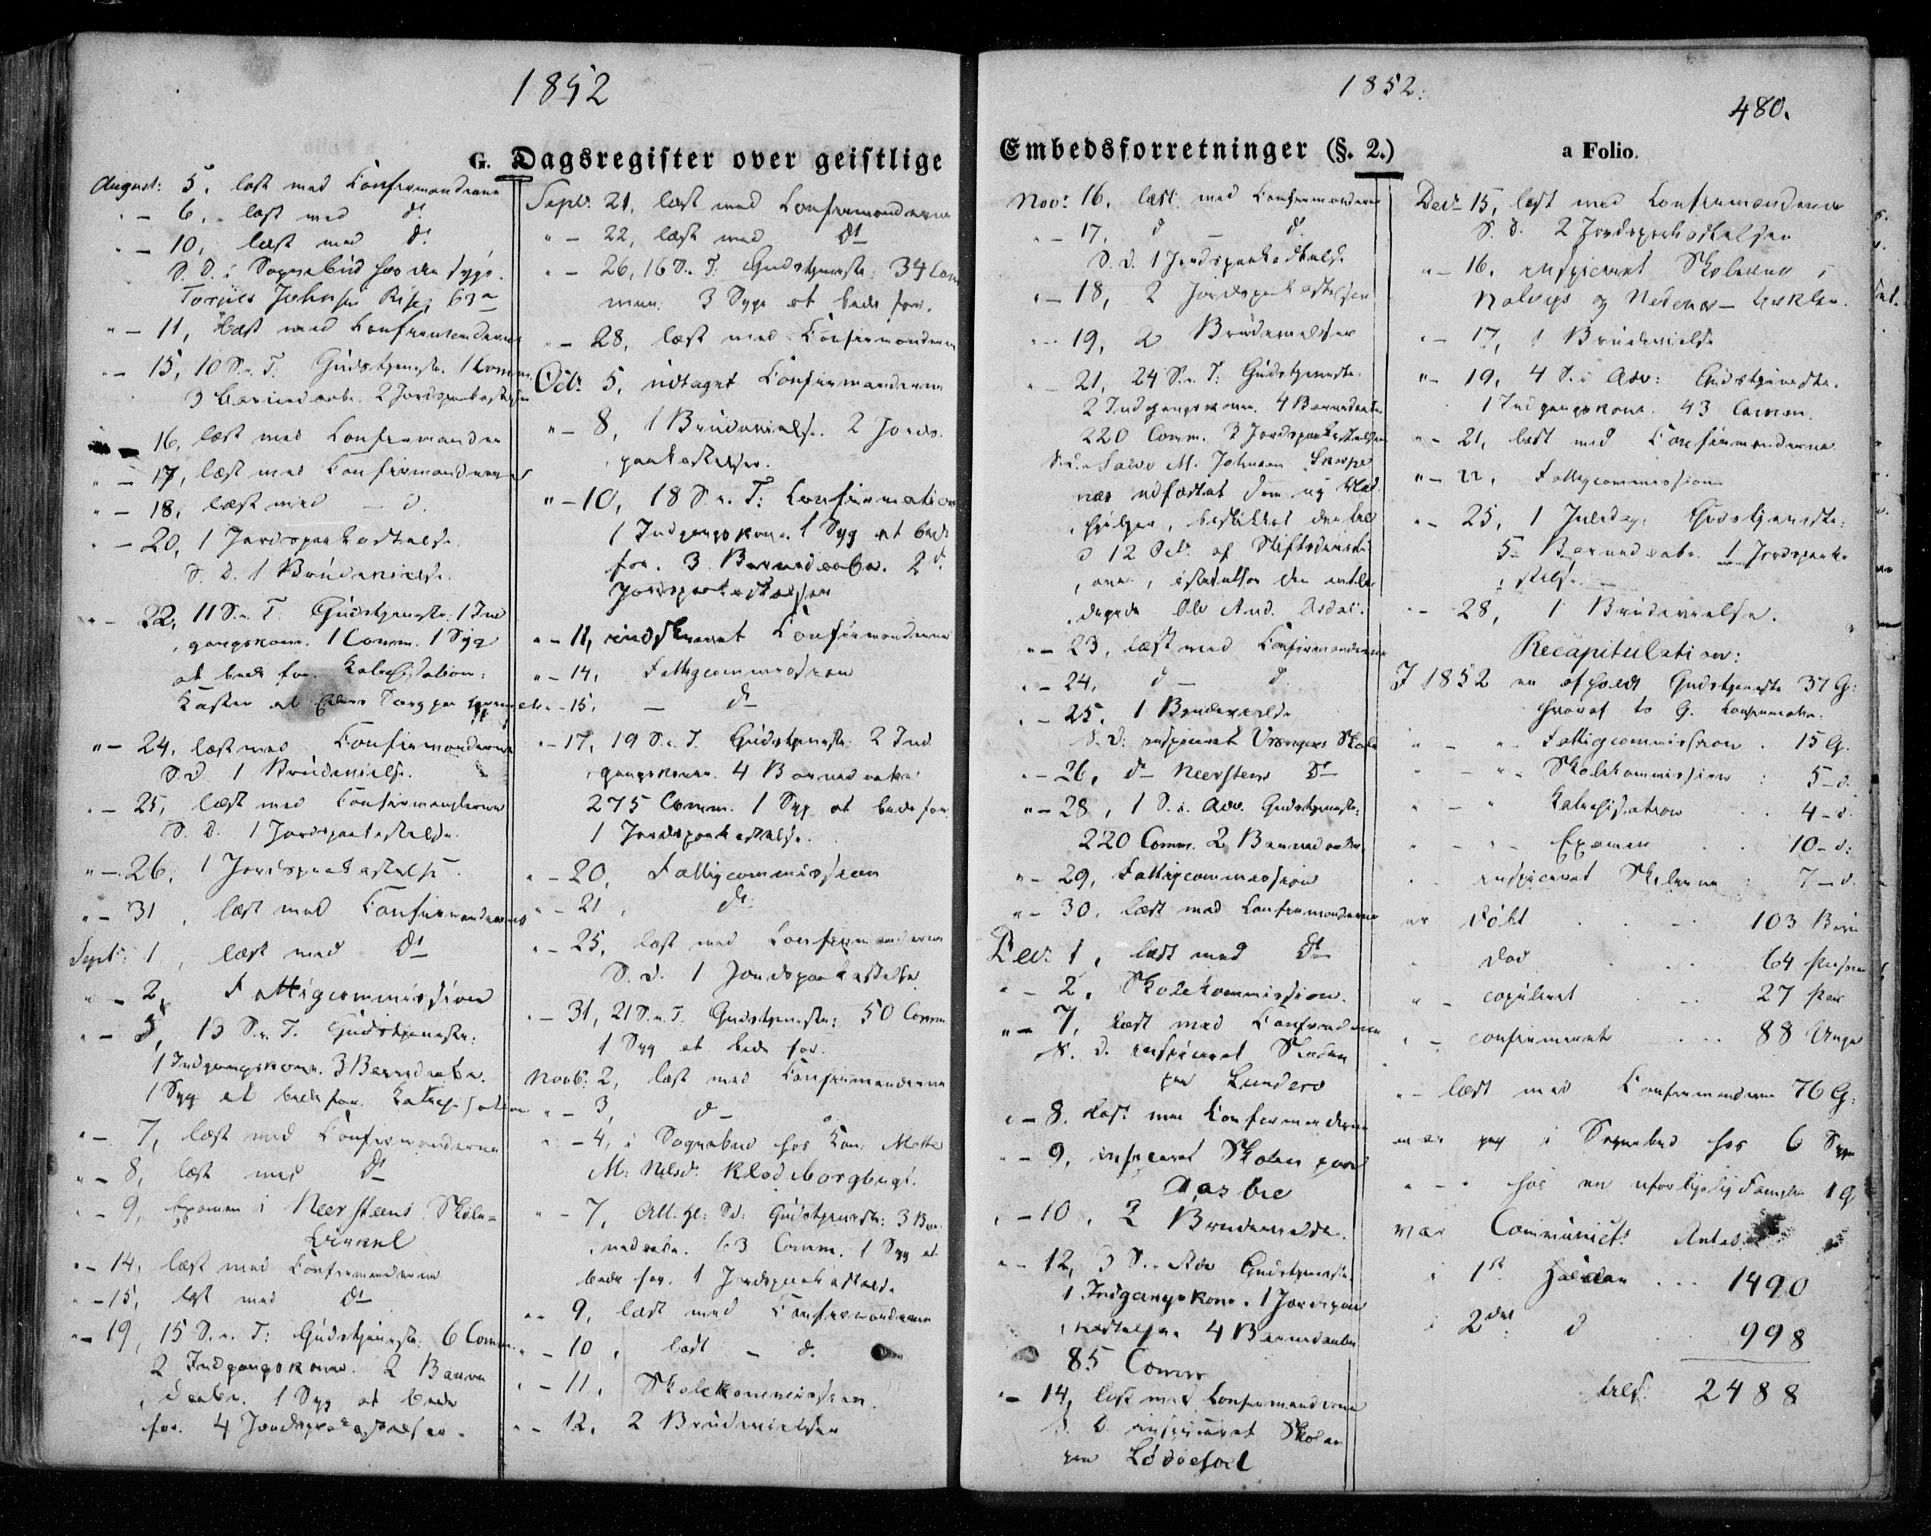 1852
G. Dagsregister over geistlige
August: 5, læst med Confirmanderne
" - 6, læst med dt
" - 10, læst med dt
S. D. i Sognebud hos den syge
Torjus Johnsen Rise, 63 a
" - 11, læst med Confirmanderne
" - 15, 10 S. e. T. Gudstjeneste. 1 Comm.
3 Barnedaabe. 2 Jordspaakastelser
" - 16, læst med Confirmanderne
" - 17, læst med Confirmanderne
" - 18, læst med - d.
" - 20, 1 Jordspaakastelse.
S. D. 1 Brudevielse.
" - 22, 11 S. e. T. Gudstjeneste. 1 Ind
gangskone. 1 Comm. 1 Syg
at bede for. Katechisation.
" - 24, læst med Confirmanderne
S. D. 1 Brudevielse.
" - 25, læst med Confirmanderne
S. D. 1 Jordspaakastelse.
" - 26, 1 Jordspaakastelse.
" - 31, læst med Confirmanderne
Septr: 1, læst med dt
" - 2, Fattigcommission
" - 5, 13 S. e. T. Gudstjeneste:
1 Indgangskone. 3 Barnedaabe.
1 Syg at bede for. Katechisation
" - 7, læst med Confirmanderne
" - 8, læst med dt
" - 9, Examen i Neersteens Skole-
" - 14, læst med Confirmanderne
" - 15, læst med dt
" - 19, 15 S. e. T: Gudstjeneste. 6 Comm.
2 Indgangskoner. 2 Barne
daabe. 1 Syg at bede
for. 4 Jordspaakastelser.
Septr: 21, læst med Confirmanderne
" - 22, læst med dt
" - 26, 16 S. e. T: Gudstjeneste: 34 Com
mun: 3 Syge at bede for.
" - 28, læst med Confirmanderne
Octr. 5, udtaget Confirmanderne
" - 8, 1 Brudevielse. 2 Jords-
paakastelser.
" - 10, 18 S. e. T: Confirmation
1 Indgangskone. 1 Syg at bede
for. 3 Barnedaabe. 2 d.
Jordspaakastelser
" - 11, indskrevet Confirmanderne
" - 14, Fattigcommission
" - 15, - dt
" - 17, 19 S. e. T. Gudstjeneste: 2 Ind
gangskoner. 4 Barnedaabe
275 Comm. 1 Syg at bede for
1 Jordspaakastelse.
" - 20, Fattigcommission
" - 21, dt
" - 25, læst med Confirmanderne
S. D. 1 Jordspaakastelse
" - 31, 21 S. e. T. Gudstjeneste: 50 Comm
1 Syg at bede for.
Novbr. 2, læst med Confirmanderne
" - 3, d -
" - 4, i Sognebud hos Kone Mette
M: Nelsd: Klodeborgbugt.
" - 7, All. Hl: Sd: Gudstjeneste: 3 Bar
nedaabe. 63 Comm. 1 Syg at
bede for. 1 Jordspaakastelse
" - 9, læst med Confirmanderne
" - 10, læst - d.
" - 11, Skolekommission.
" - 12, 2 Brudevielser
1852:
480.
Embedsforretninger (§. 2.)
a Folio.
Nov: 16, læst med Confirmanderne
" - 17, d - d.
S. D. 1 Jordspaakastelse
" - 18, 2 Jordspaakastelser
" - 19, 2 Brudevielser
" - 21, 24 S. e. T: Gudstjeneste.
2 Indgangskoner. 4 Barnedaabe
220 Comm. 3 Jordspaakastelser
d 12 Octr. af Stiftsdirekti
onen, istedetfor den entle
digede Ole And. Asdal.
" - 23, læst med Confirmanderne
" - 24, d - d
" - 25, 1 Brudevielse
S. D: inspiceret Vrengens Skole
" - 26, dt Neersteens dt
" - 28, 1 S. i. Adv. Gudstjeneste:
220 Comm. 2 Barnedaabe.
" - 29, Fattigcommission
" - 30, læst med Confirmanderne
Dec: 1, læst med dt
" - 2, Skolekommission.
" - 7, læst med Confirmanderne
S. D. inspiceret Skolen
paa Lunderø
" - 8, læst med Confirmanderne
" - 9, inspiceret Skolen paa
Aasbie
" - 10, 2 Brudevielser.
" - 12, 3 S. i Adv Gudstjeneste.
1 Indgangskone. 1 Jordspaa
kastelse. 4 Barnedaabe
85 Comm
" - 14, læst med Confirmanderne
S. D. inspiceret Skolen
paa Lødøesøl
Decr 15, læst med Confirmanderne
S. D. 2 Jordspaakastelser
" - 16, inspiceret Skolerne i
" - 17, 1 Brudevielse
" - 19, 4 S. i Adv: Gudstjeneste.
1 Indgangskone. 43 Comm.
" - 21, læst med Confirmanderne
" - 22, Fattigcommission
" - 25, 1 Juledag: Gudstjeneste:
5 Barnedaabe. 1 Jordspaaka
stelse.
" - 28, 1 Brudevielse.
Recapitulation:
I 1852 er afholdt Gudstjeneste 37 G:
hvoraf to G. Confirmation.
" - " - Fattigcommission . 15 G.
" - " - Skolekommission : 5 - d.
" - " Katechisation . . 4 - d
" - " - Examen . . 10 - d:
" - inspiceret Skolerne : 7 - d.
er født . . . 103 Børn
" død . . . 64 Personer
" - copuleret . . 27 Par
" - confirmeret . . . 88 Unge
" - læst med Confirmanderne 76 G:
var jeg i Sognebud hos 6 Syge
" - " hos en uforligelig Familie 1 G
var Communict: Antal
i 1ste Halvaar . . . 1490
i 2det d . 998
tils: 2488